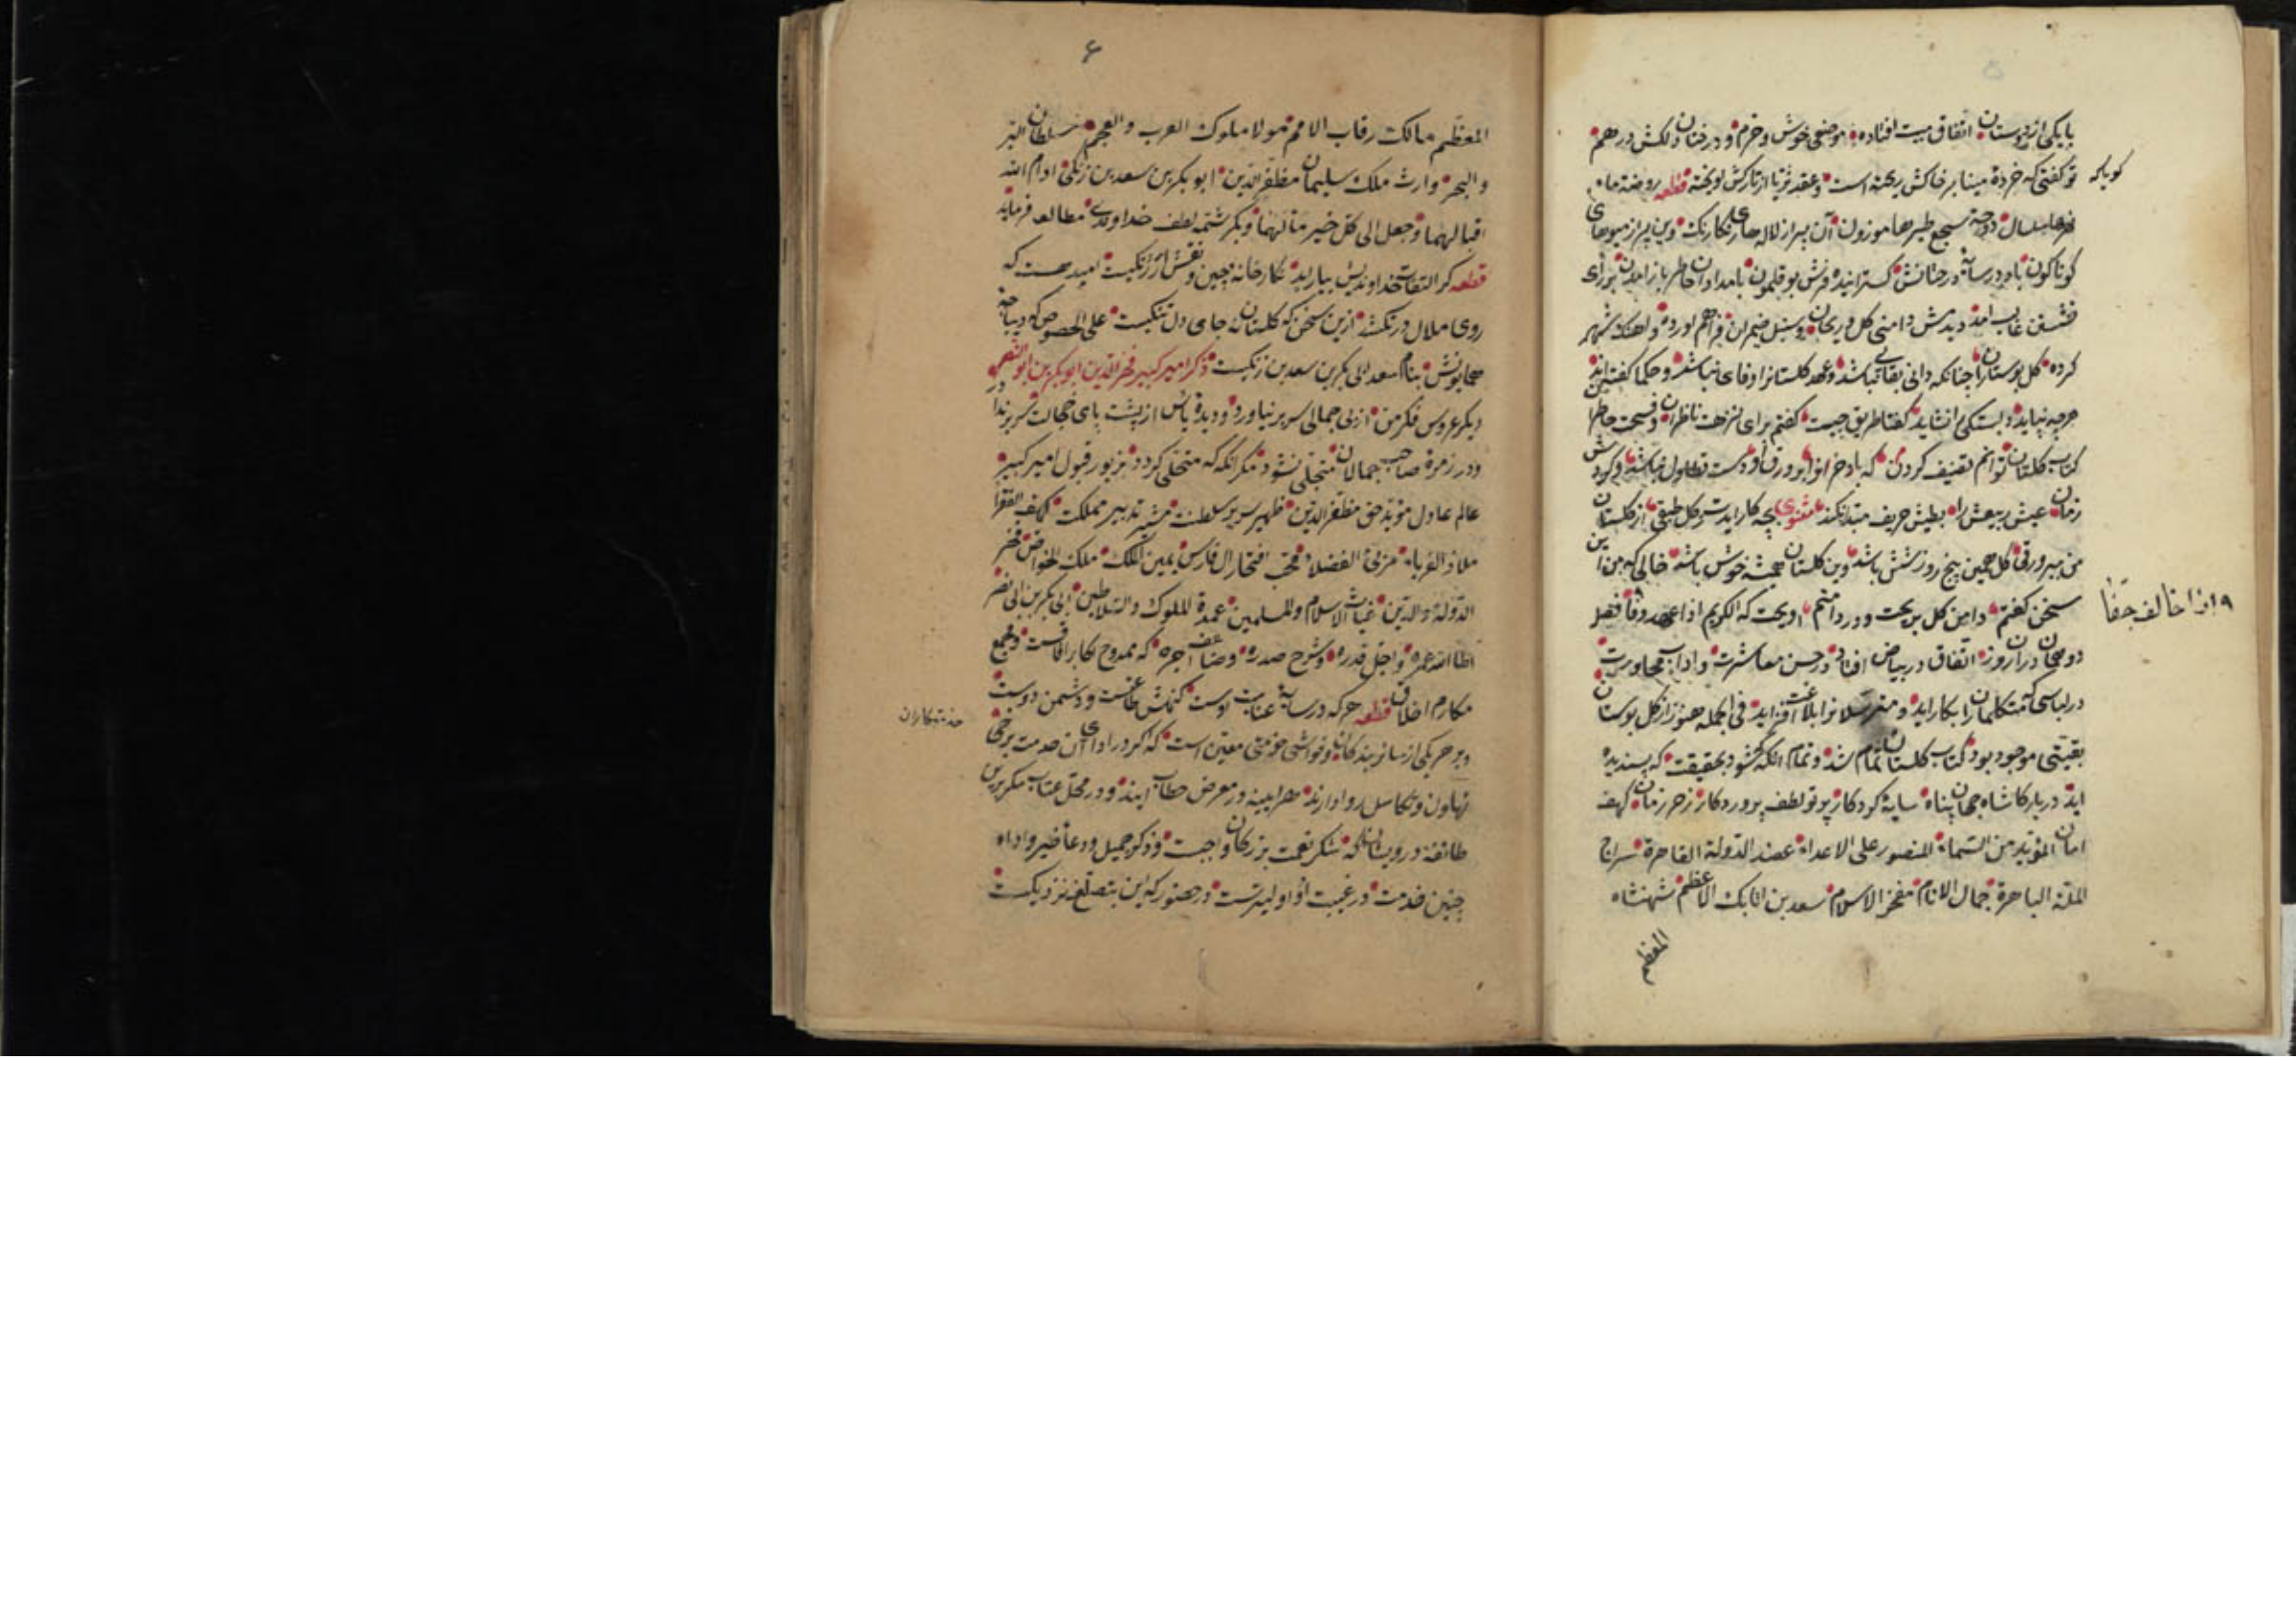 با یکی از دوستان اتفاق مبیت افتاده موضعی خوش و خرم و درختان دلکش درهم
کویا که
تو کفتی که خردهٔ مینا بر خاکش ریخته است وعقد ثریا از تارکش اویخته قطعه روضة ماء
نهرها سلسال دوحة سجع طیرها موزون آن پر از لالهای رنکارنک وین پر از میوهای
کوناکون باد در سایهٔ درختانش کسترانیده فرش بوقلمون بامدادان خاطر باز امدن بر رای
نشستن غالب امد دیدمش دامنی کل و ریحان و سنبل ضیمران فراهم اورده و اهنک شهر
کرده کفتم کل بوستانرا چنانکه دانی بقائی نباشد وعهد کلستانرا وفای نباشد و حکما کفته‌اند
هرچه نپاید دلبستکی را نشاید کفتا طریق چیست کفتم برای نزهت ناظران و فسحت حاضران
کتاب کلستان توانم تصنیف کردن که باد خزانرا بر ورق او دست تطاول نباشد و کردش
زمان عیش ربیعش را بطیش خریف مبدل نکند مثنوی بچه کار ایدت زکل طبقی از کلستان
من ببر ورقی کل همین پنج روز و شش باشد وین کلستان همیشه خوش باشد حالی که من این
سخن کفتم دامن کل بریخت و در دامنم اویخت که الکریم اذا وعد وفا فصل
واذا خالف جفا
دو همان دران روز اتفاق در بیاض افتاد در حسن معاشرت و اداب محاورت
در لباسی که متکلمانرا بکار اید و مترسلانرا بلاغت افزاید فی الجمله هنوز از کل بوستان
بقیتی موجود بود کتاب کلستان تمام شد و تمام انکه شود بحقیقت که پسندیده
اید در بارکاه شاه جهان پناه سایهٔ کردکار پرتو لطف پروردکار ذخر زمان کهف
امان المؤید من السماء المنصور علی الاعداء عضد الدولة القاهرة سراج
الملة الباهرة جمال الانام مفخر الاسلام سعد بن اتابک الاعظم شهنشاه
المعظم
۶
المعظم مالک رقاب الامم مولا ملوک العرب والعجم سلطان البر
والبحر وارث ملک سلیمان مظفر الدین ابو بکر بن سعد بن زنکی ادام الله
اقبالهما وجعل الی کل خیر مآلهما و بکرشمه لطف خداوندی مطالعه فرماید
قطعه کر التفات خداوندیش بیاراید نکارخانه چین و نقش ارژنکیست امید هست که
روی ملال درنکشد ازین سخن که کلستان نه جای دل تنکیست علی الخصوص که دیباجه
همایونش بنام سعد ابی بکر بن سعد بن زنکیست ذکر امیر کبیر فخر الدین ابو بکر بن ابو النصر
دیکر عروس فکر من از بی جمالی سر بر نیاورد و دیدهٔ یأس از پشت پای خجالت بر ندارد
ودر زمرهٔ صاحب جمالان متجلی نشود مکر انکه که متحلی کردد بزیور قبول امیر کبیر
عالم عادل مؤید حق مظفر الدین ظهیر سریر سلطنت مشیر تدبیر مملکت کهف الفقرا
ملاذ الغرباء مربی الفضلاء محب افتخار ال فارس یمین الملک ملک الخواص فخر
الدولة والدین غیاث الاسلام والمسلمین عمدة الملوک والسلاطین ابی بکر بن ابی نصر
اطال الله عمره واجل قدره وشرح صدره وضاعف اجره که ممدوح اکابر افاقست و مجمع
مکارم اخلاق قطعه هرکه در سایهٔ عنایت اوست کنهش طاعتست و دشمن دوست
خدمتکاران
و بر هر یکی از سائر بندکان و حواشی خدمتی معین است که اکر در ادای ان خدمت برخی
تهاون و تکاسل روا دارند هر اینه در معرض خطاب ایند و در محل عتاب مکر برین
طائفه درویشان که شکر نعمت بزرکان واجبست و ذکر جمیل و دعا خیر و اداء
چنین خدمت در غیبت اولیترست در حضور که این بتصنع نزدیکست